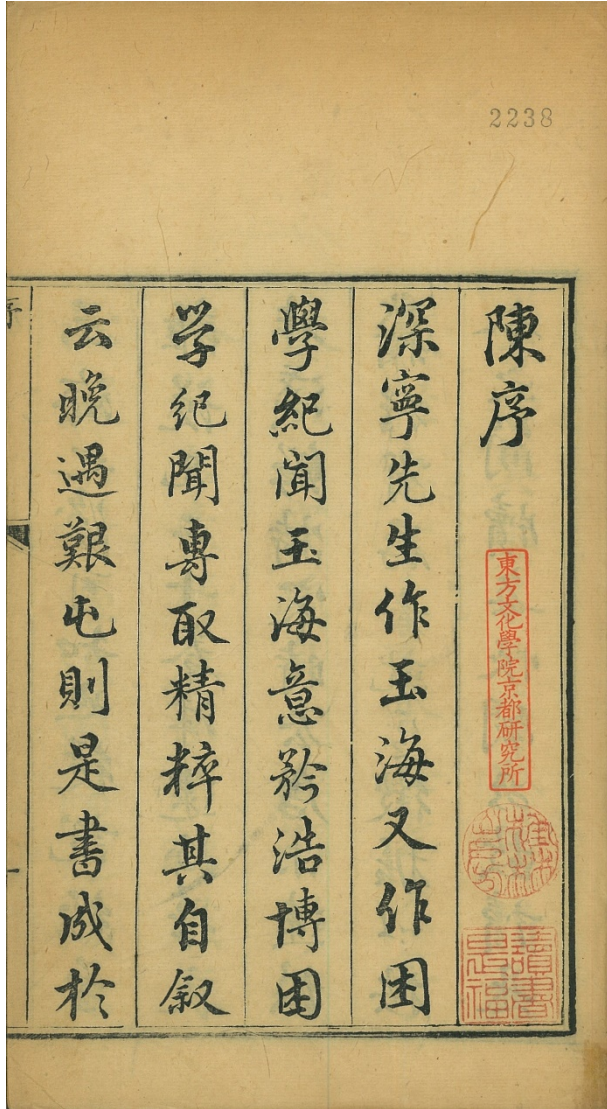 2238
陳序
東方文化學院京都研究所
讀書是福
深寧先生作玉海又作困
學紀聞玉海意矜浩博困
学紀聞專取精粹其自叙
云晚遇艱屯則是書成於
序